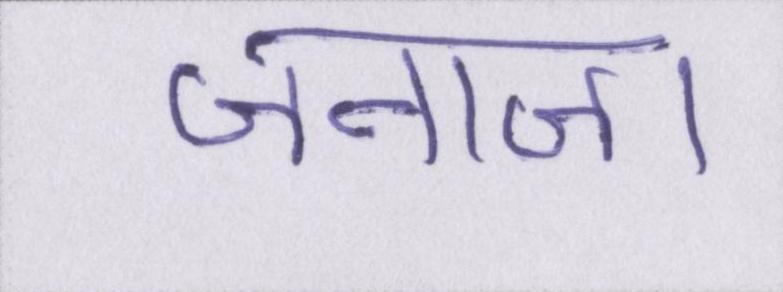 जनाजा